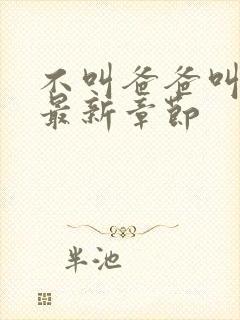 不叫爸爸叫
最新章节
半池